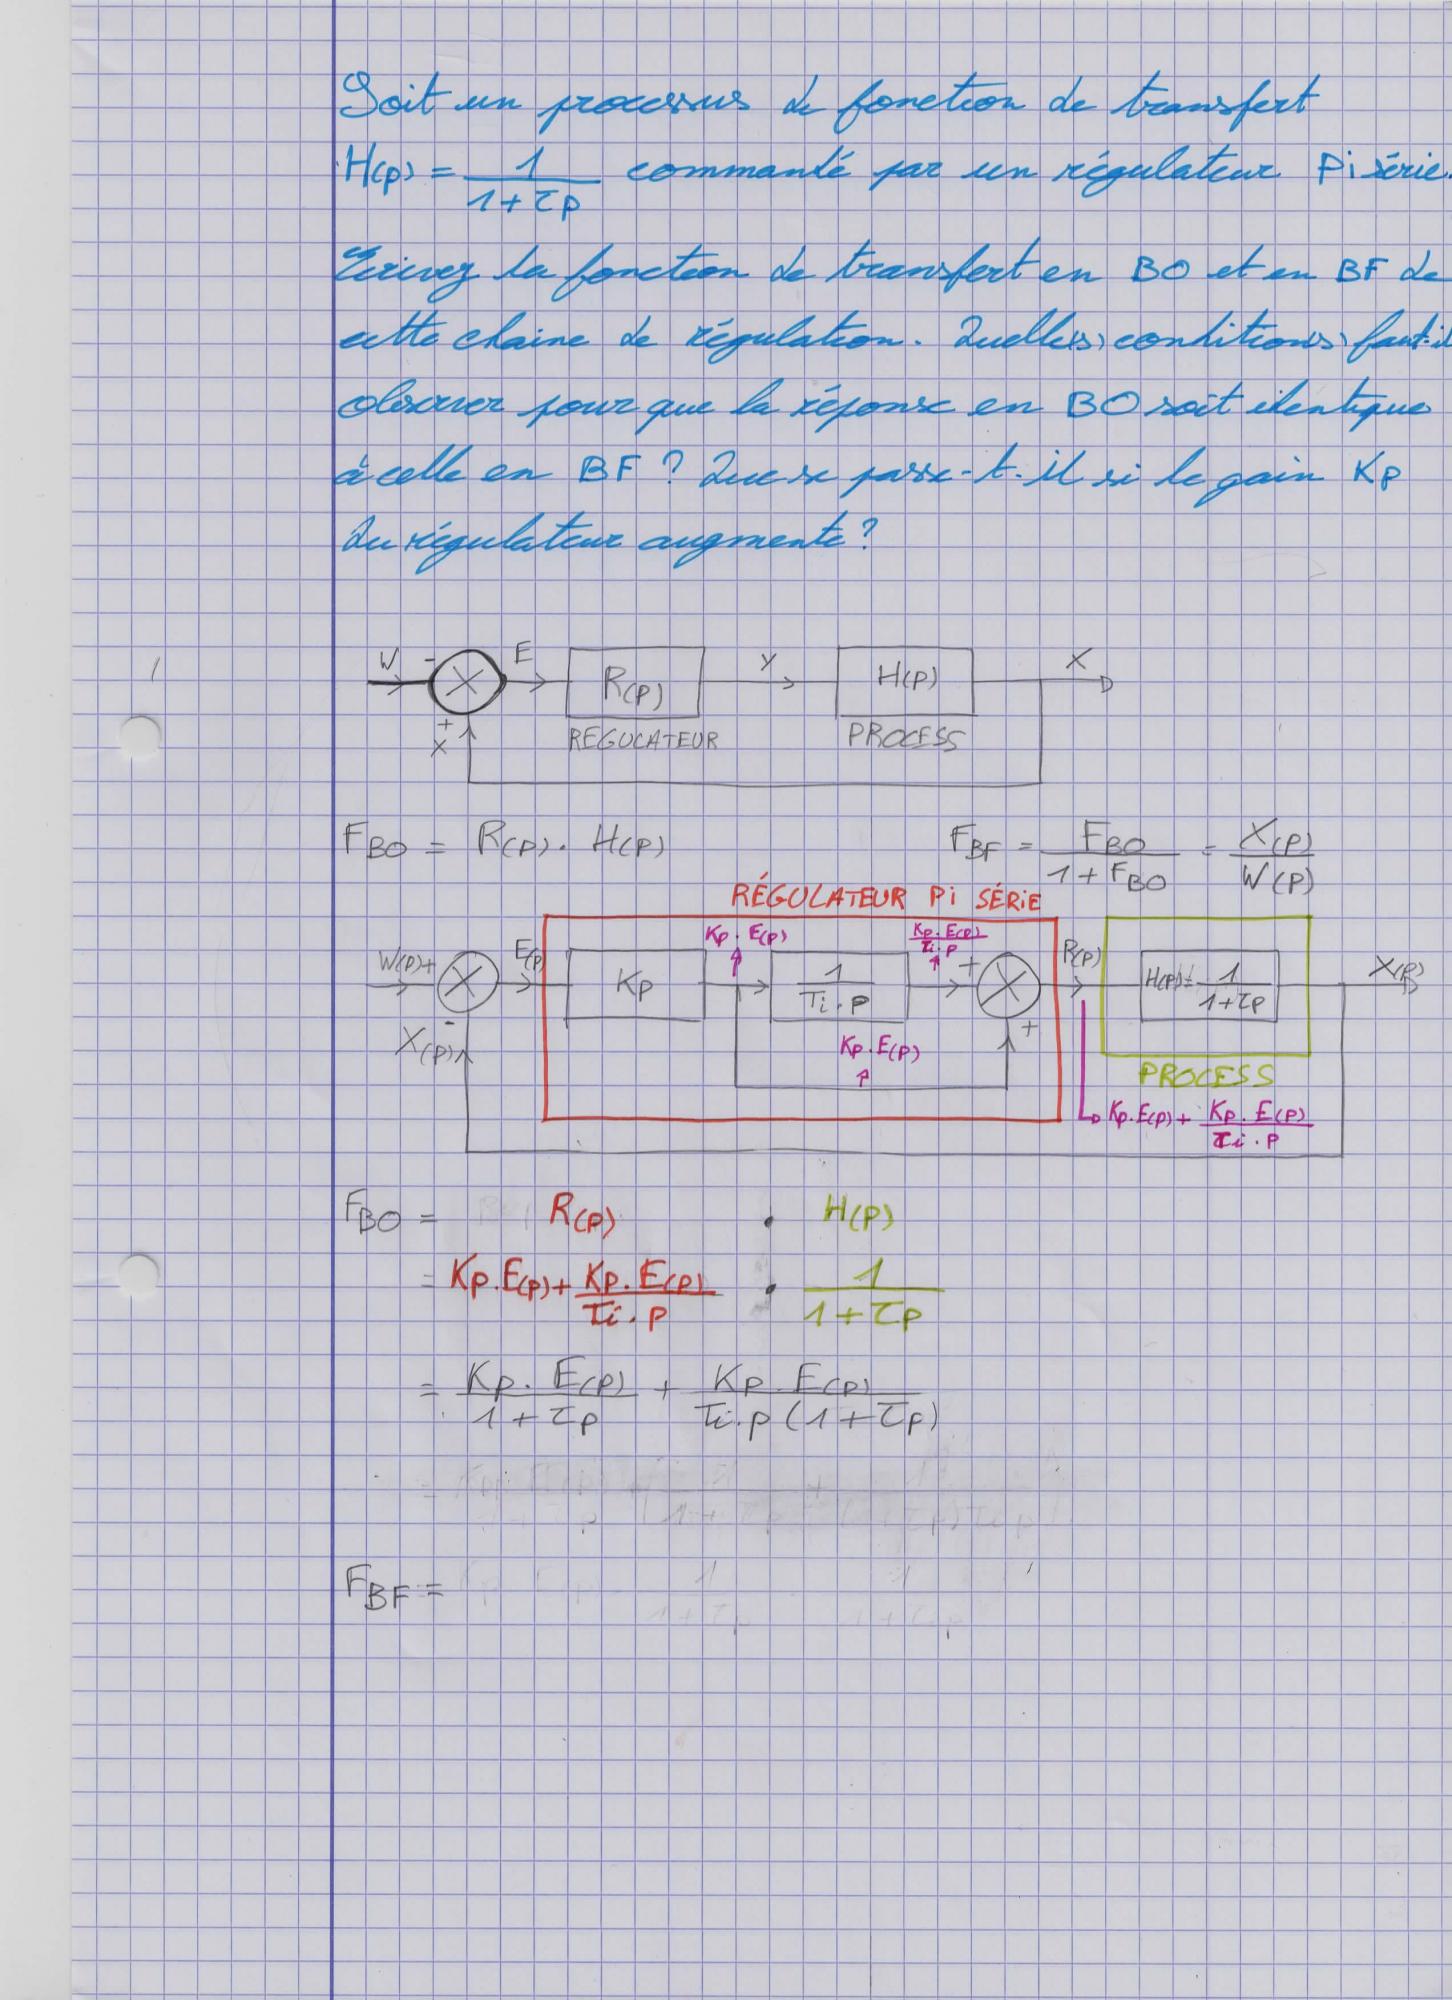 Soit un processus de fonction de transfert
H(p) = 1/(1+τp) commandé par un régulateur Pi série.
Ecrivez la fonction de transfert en BO et en BF de
cette chaine de régulation. Quelle(s) condition(s) faut-il
observer pour que la réponse en BO soit identique
à celle en BF ? Que se passe-t-il si le gain Kp
du régulateur augmente ?
W - E R(p) Y H(p) X
+ X REGULATEUR PROCESS
F_BO = R(p) . H(p) F_BF = F_BO/(1+F_BO) = X(p)/W(p)
RÉGULATEUR Pi SÉRIE
Kp.E(p) Kp.E(p)/(Ti.p)
W(p) + E(p) Kp 1/(Ti.p) + R(p) H(p) = 1/(1+τp) X(p)
X(p) - Kp.E(p) +
PROCESS
Kp.E(p) + Kp.E(p)/(Ti.p)
F_BO = R(p) . H(p)
= Kp.E(p) + Kp.E(p)/(Ti.p) . 1/(1+τp)
= Kp.E(p)/(1+τp) + Kp.E(p)/(Ti.p(1+τp))
F_BF =